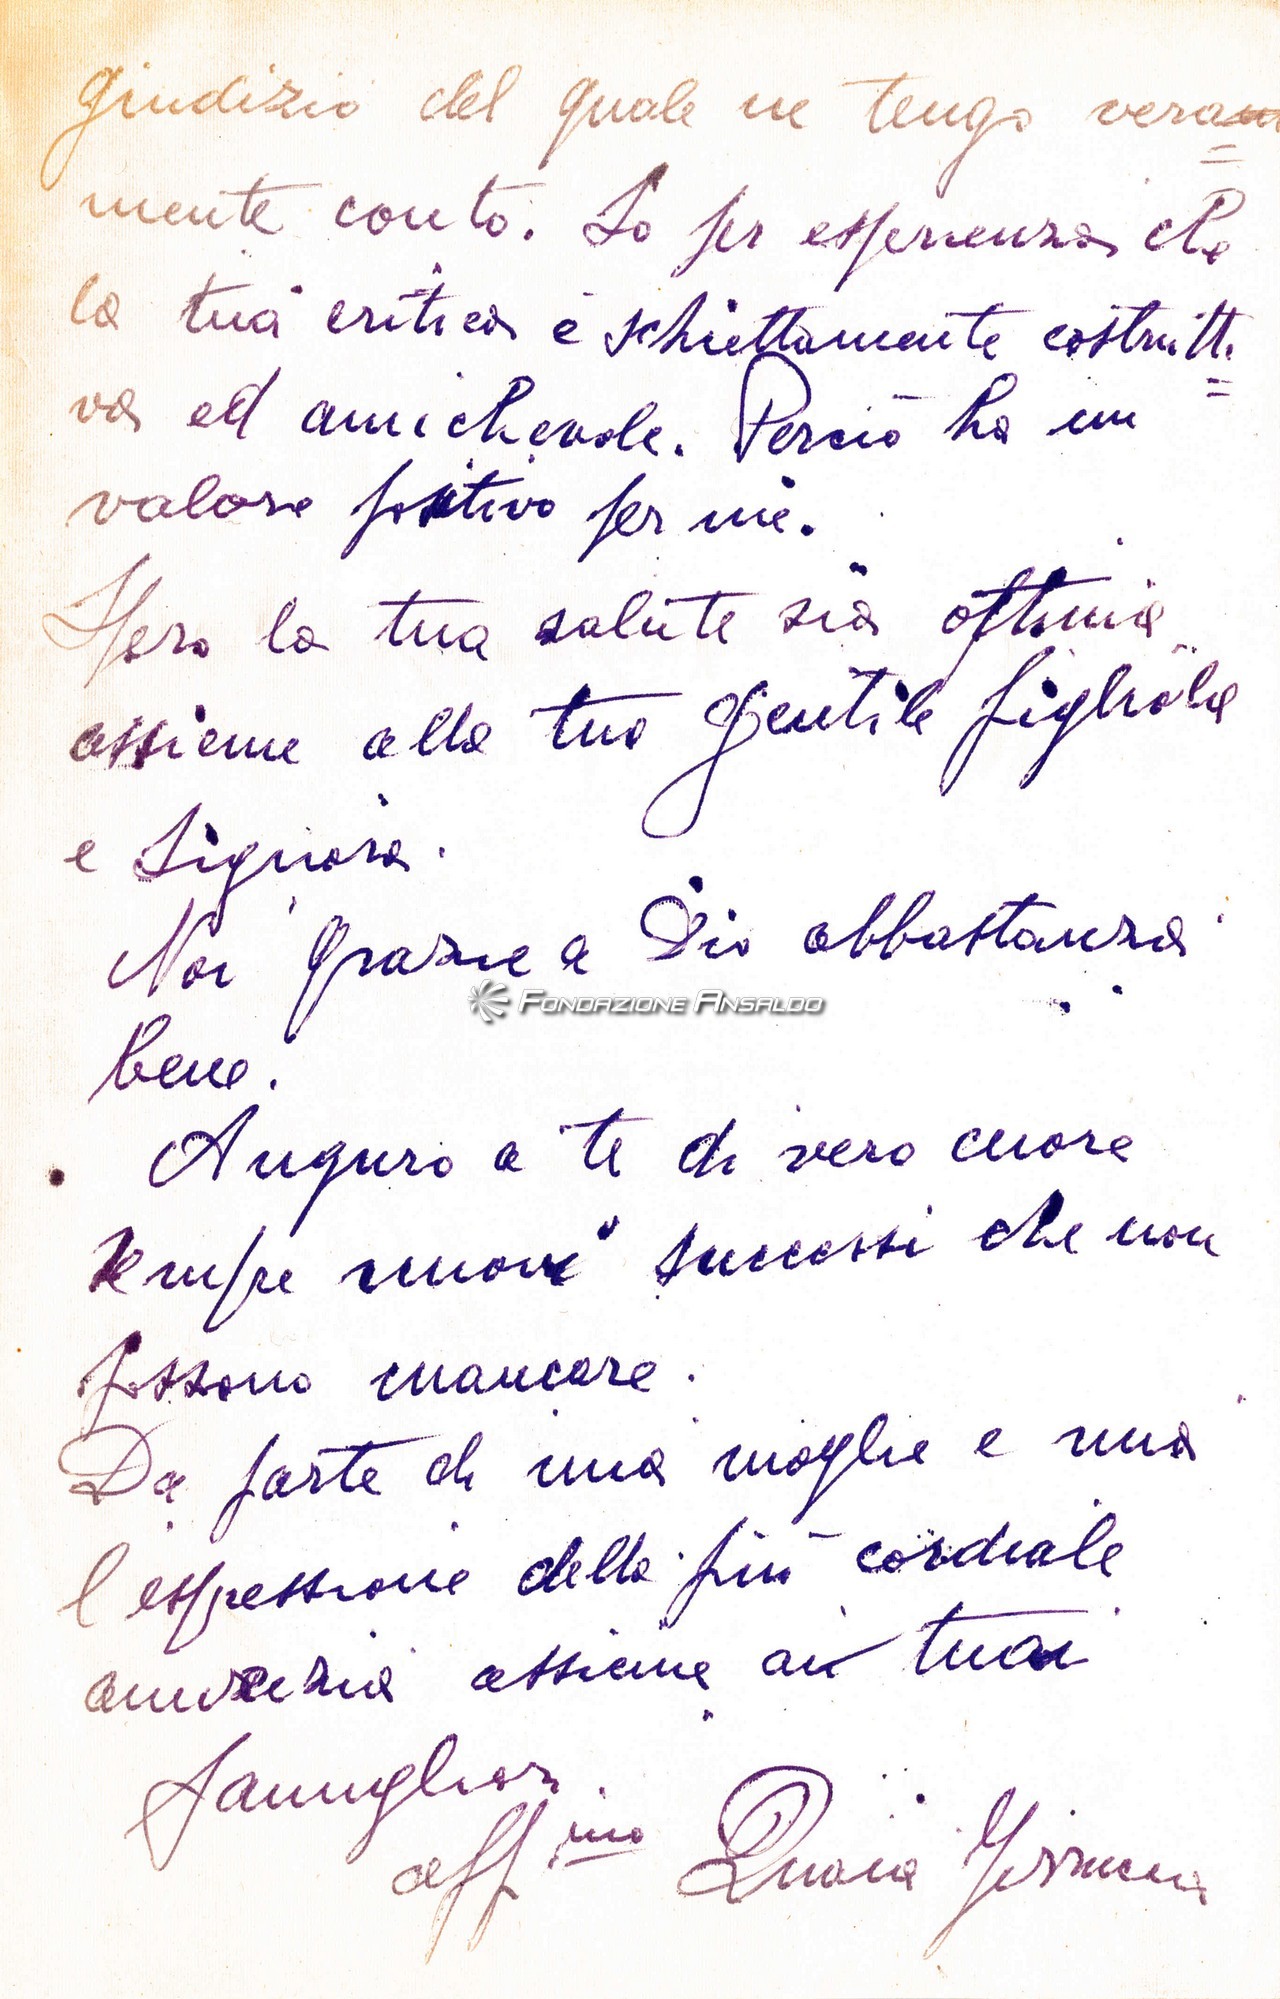 giudizio del quale ne tengo vera=
mente conto. So per esperienza che
la tua critica è schiettamente costrutti=
va ed amichevole. Perciò ha un
valore positivo per me.
Spero la tua salute sia ottima
assieme alla tua gentile figliola
e Signora.
Noi grazie a Dio abbastanza
FONDAZIONE ANSALDO
bene.
Auguro a te di vero cuore
sempre nuovi successi che non
possono mancare.
Da parte di mia moglie e mia
l'espressione della più cordiale
amicizia assieme ai tuoi
famigliari.
aff.imo